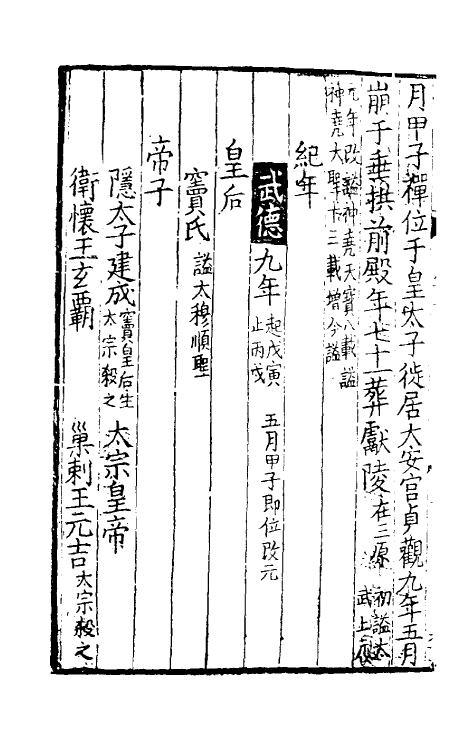 月甲子禪位于皇太子徙居大安宫貞觀九年五月
崩于垂拱前殿年七十一葬獻陵在三原 初謚太武上元
元年改謚神堯天寶八載謚神堯大聖十三載增今謚
紀年
武德九年起戊寅止丙戌 五月甲子即位改元
皇后
竇氏謚太穆順聖
帝子
隱太子建成竇皇后生太宗殺之 太宗皇帝
衛懷王玄霸 巢剌王元吉太宗殺之